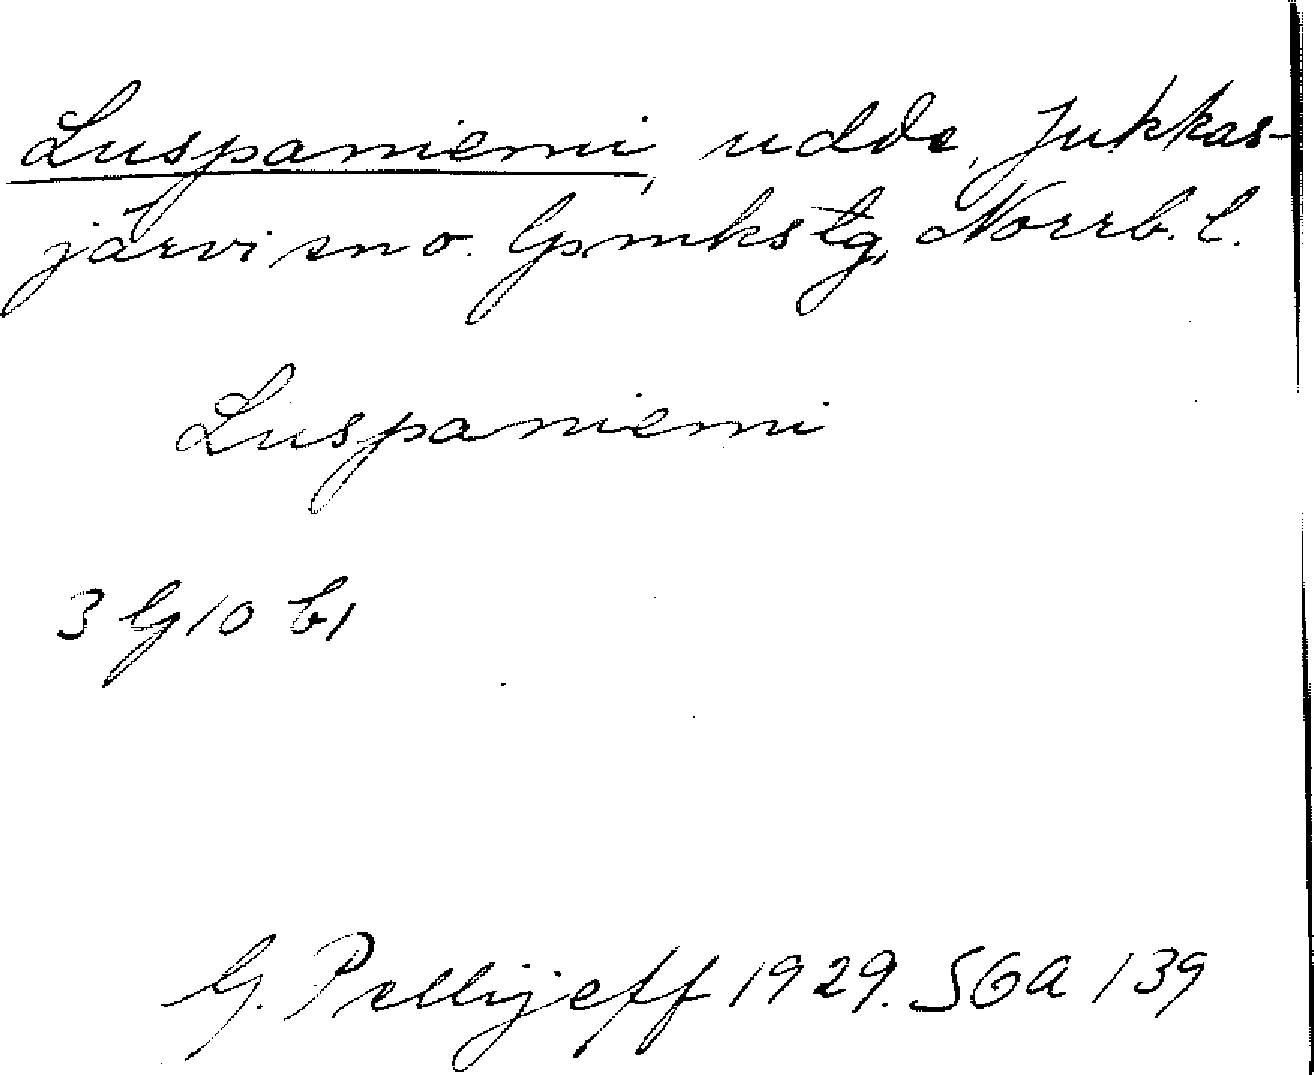 Luspaniemi, udde, Jukkas-
järvi sn o. Gmkstg, Norrb. l.
Luspaniemi
3 G 10 b1
G. Pellijeff 1929. SGA 139